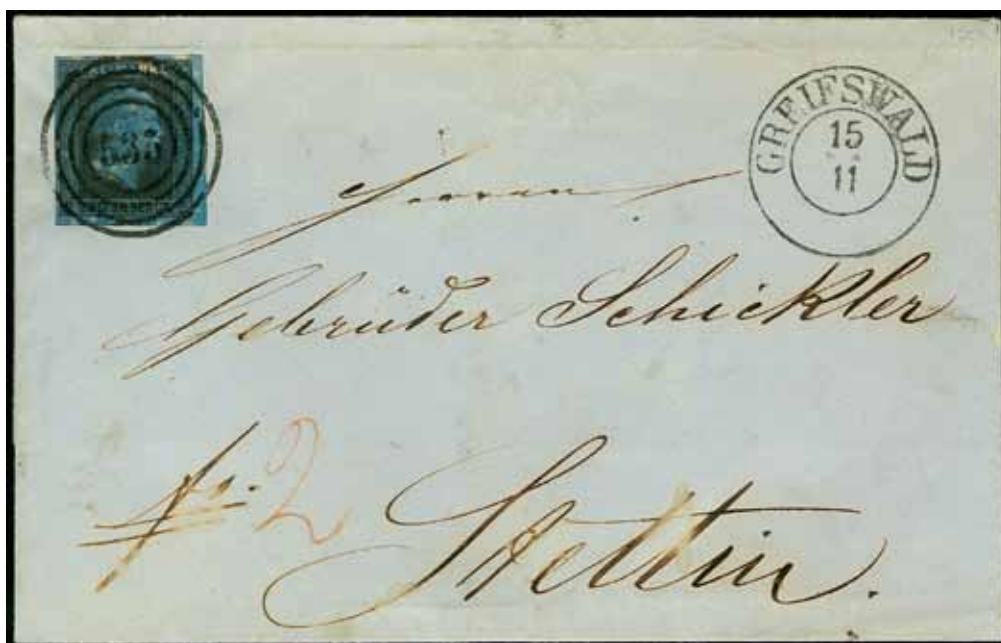 GREIFSWALD
15
11
Herren
Gebrüder Schickler
fr. 2
Stettin.